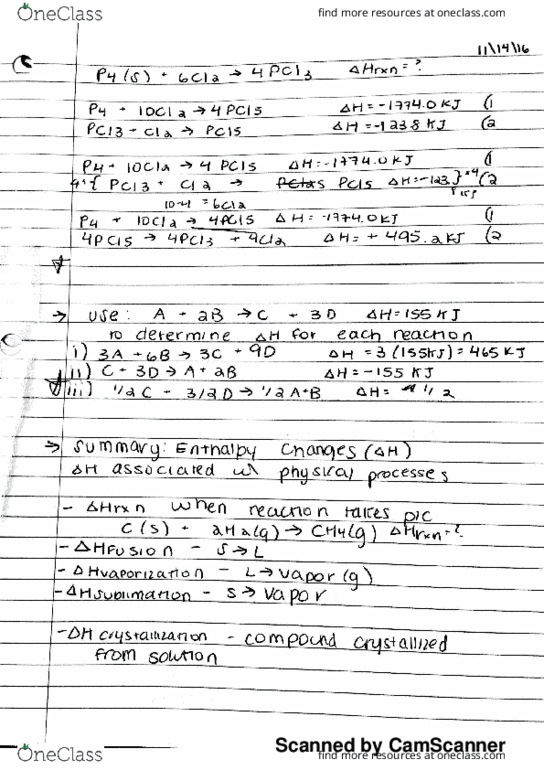 OneClass
find more resources at oneclass.com
11/14/16
P4(s) + 6Cl2 → 4PCl3 ΔHrxn = ?
P4 + 10Cl2 → 4PCl5 ΔH = -1774.0 KJ (1
PCl3 + Cl2 → PCl5 ΔH = -123.8 KJ (2
P4 + 10Cl2 → 4 PCl5 ΔH = -1774.0 KJ (1
PCl3 + Cl2 → PCl5 ΔH = -123. } × 4 (2
10-4 = 6Cl2
P4 + 10Cl2 → 4PCl5 ΔH = -1774.0 KJ (1
4PCl5 → 4PCl3 + 4Cl2 ΔH = + 495.2 KJ (2
→ use: A + 2B → C + 3D ΔH = 155 KJ
to determine ΔH for each reaction
i) 3A + 6B → 3C + 9D ΔH = 3 (155KJ) = 465 KJ
ii) C + 3D → A + 2B ΔH = -155 KJ
iii) 1/2 C + 3/2 D → 1/2 A + B ΔH = 1/2
→ Summary: Enthalpy Changes (ΔH)
ΔH associated w/ physical processes
- ΔHrxn when reaction takes plc
C(s) + 2H2(g) → CH4(g) ΔHrxn = ?
- ΔHfusion - S → L
- ΔHvaporization - L → vapor (g)
- ΔHsublimation - S → vapor
- ΔH crystallization - compound crystallized
from solution
Scanned by CamScanner
OneClass
find more resources at oneclass.com